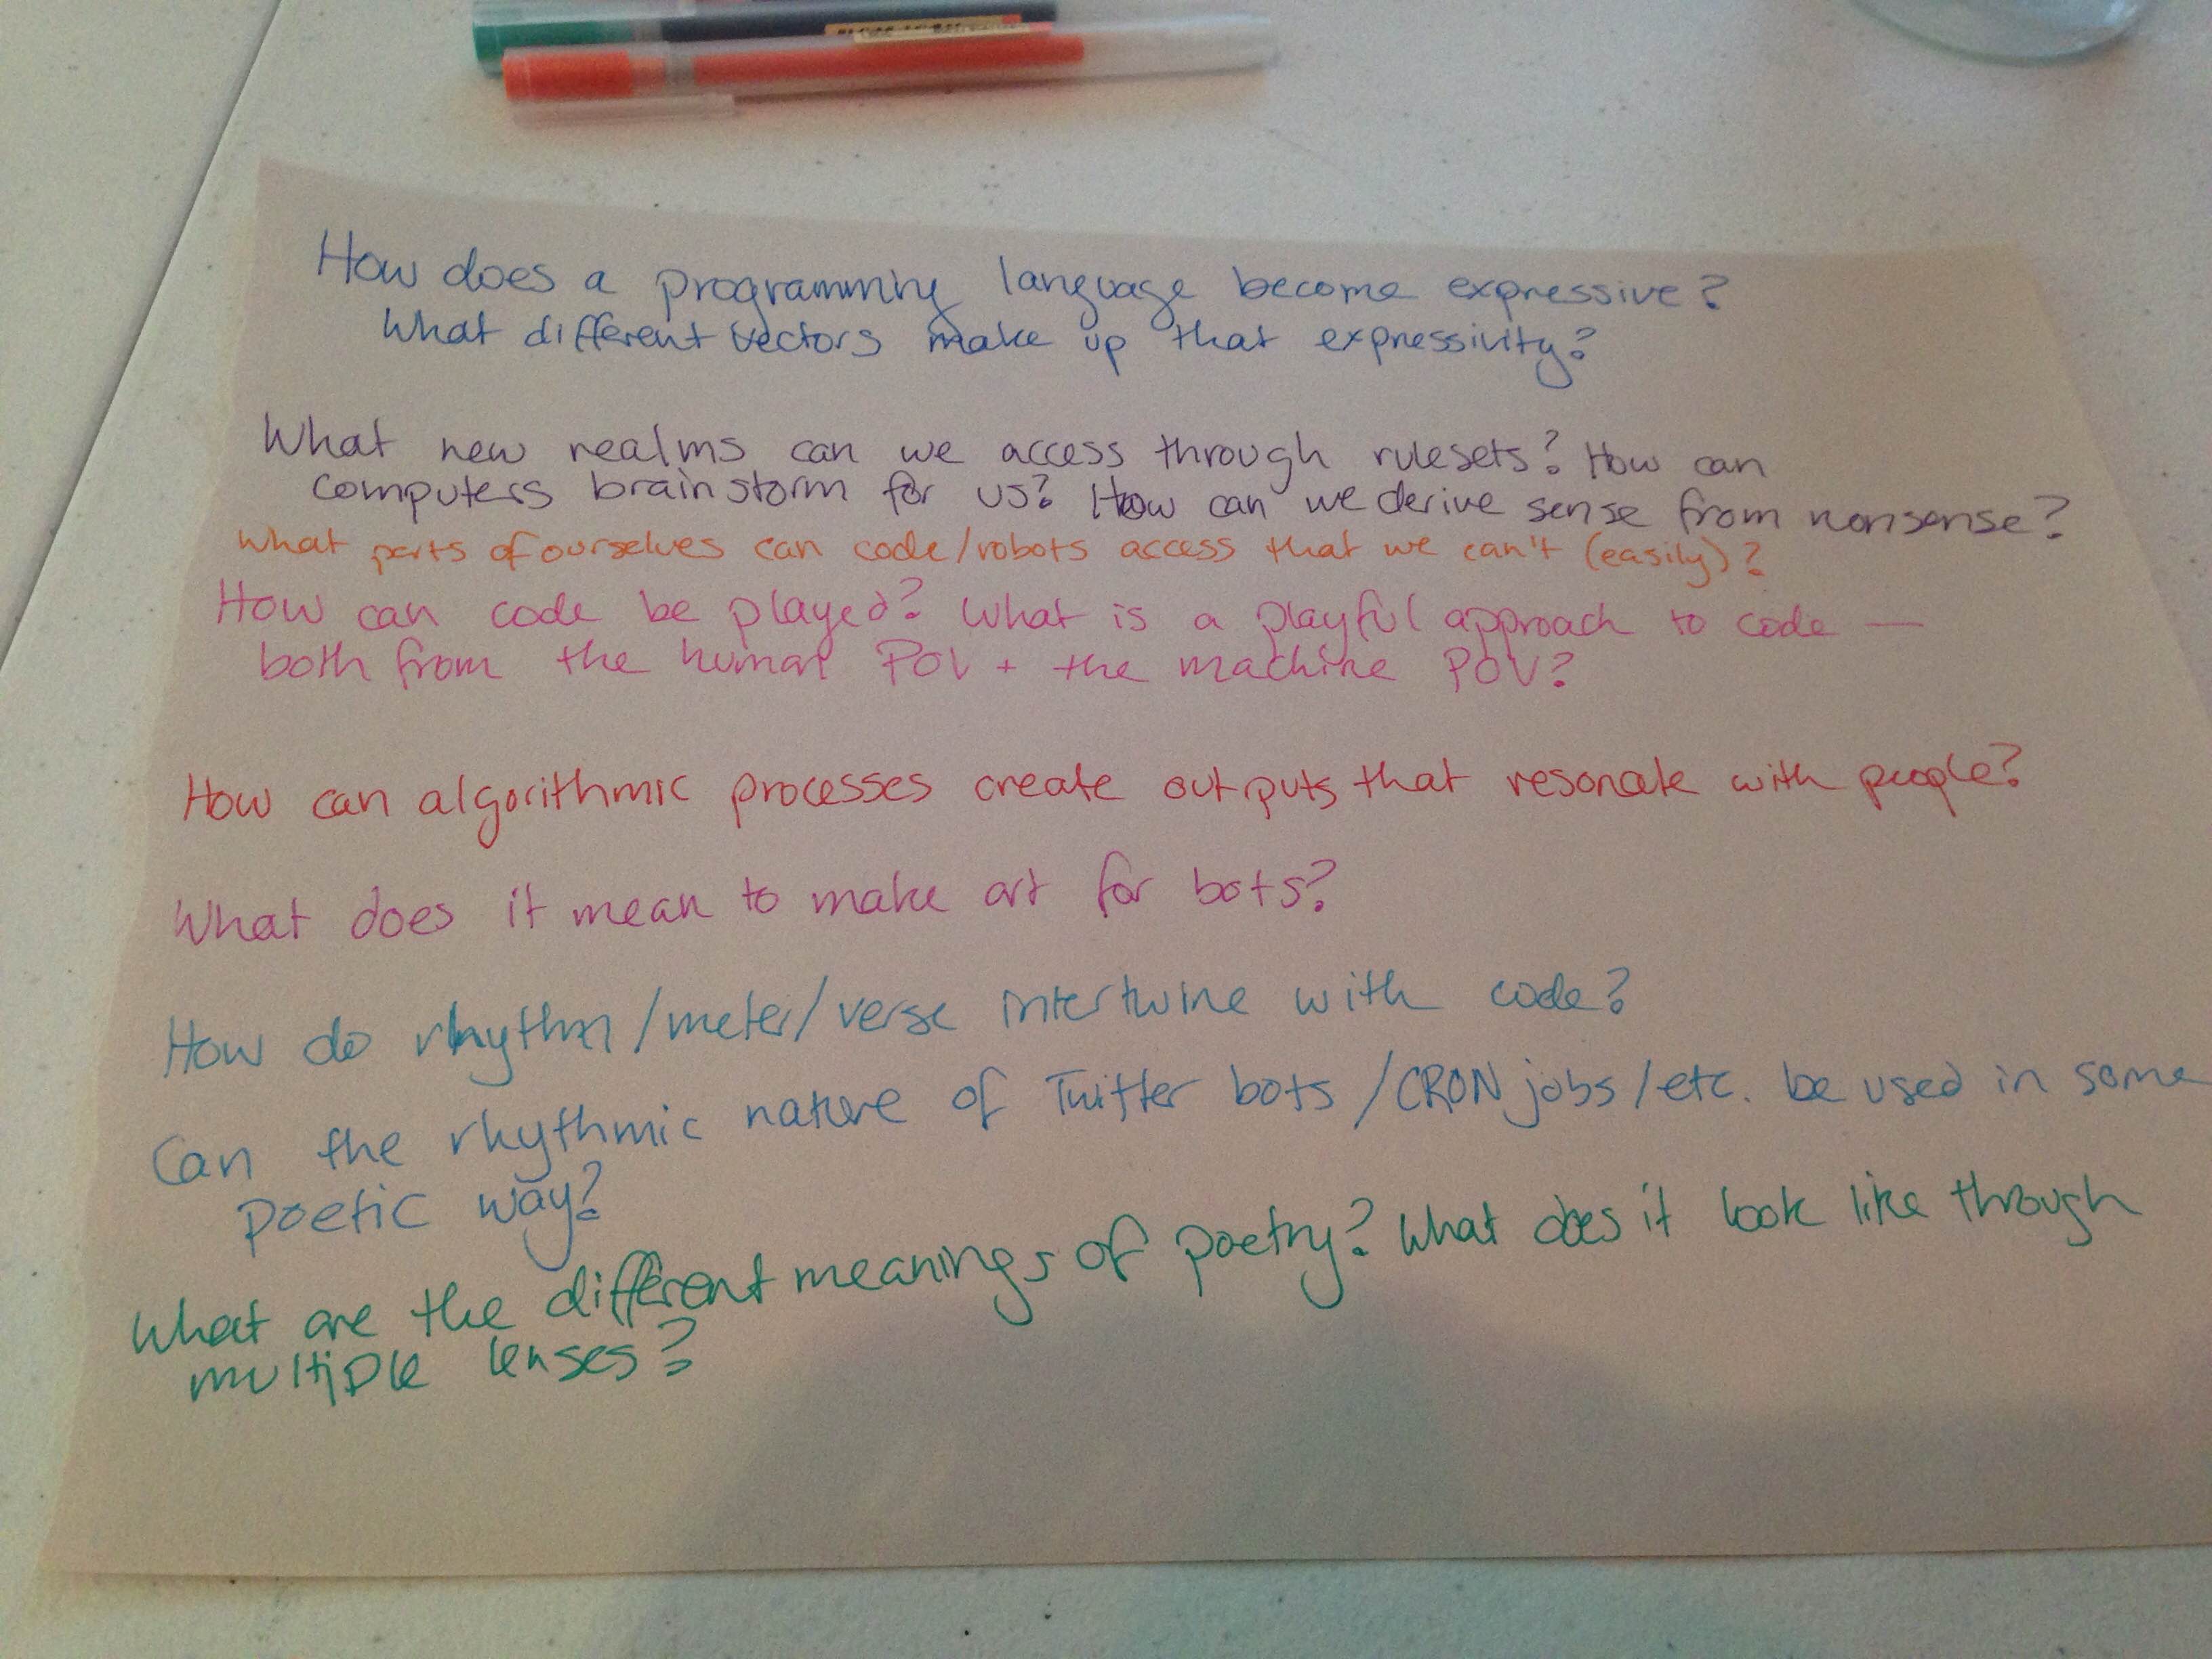 How does a programming language become expressive?
What different vectors make up that expressivity?
What new realms can we access through rulesets? How can
computers brainstorm for us? How can we derive sense from nonsense?
What parts of ourselves can code/robots access that we can't (easily)?
How can code be played? What is a playful approach to code —
both from the human POV + the machine POV?
How can algorithmic processes create outputs that resonate with people?
What does it mean to make art for bots?
How do rhythm/meter/verse intertwine with code?
Can the rhythmic nature of Twitter bots /CRON jobs/etc. be used in some
poetic way?
What are the different meanings of poetry? What does it look like through
multiple lenses?